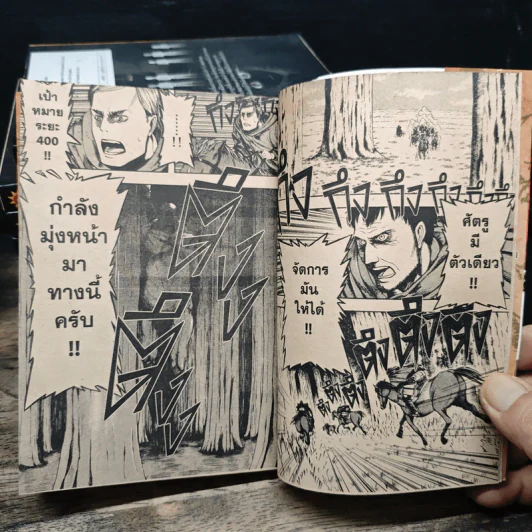 เป้า
หมาย
ระยะ
400
!!
......!!
กำลัง
มุ่งหน้า
มา
ทางนี้
ครับ
!!
ตึง
ตึง
กึง กึง กึง กึง
ศัตรู
มี
ตัวเดียว
!!
จัดการ
มัน
ให้ได้
!!
ตึง ตึง ตึง